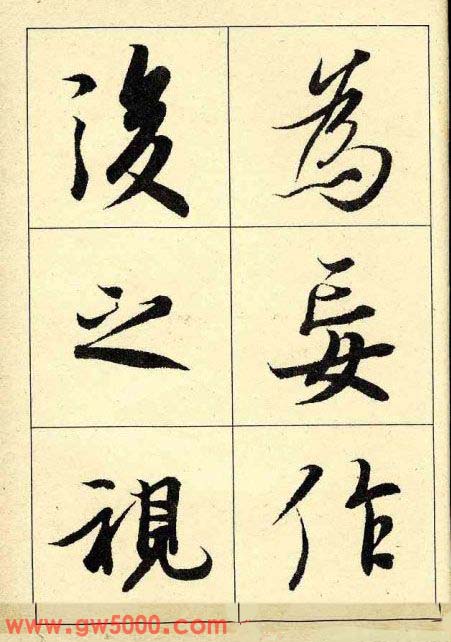 為妄作
後之視
www.gw5000.com